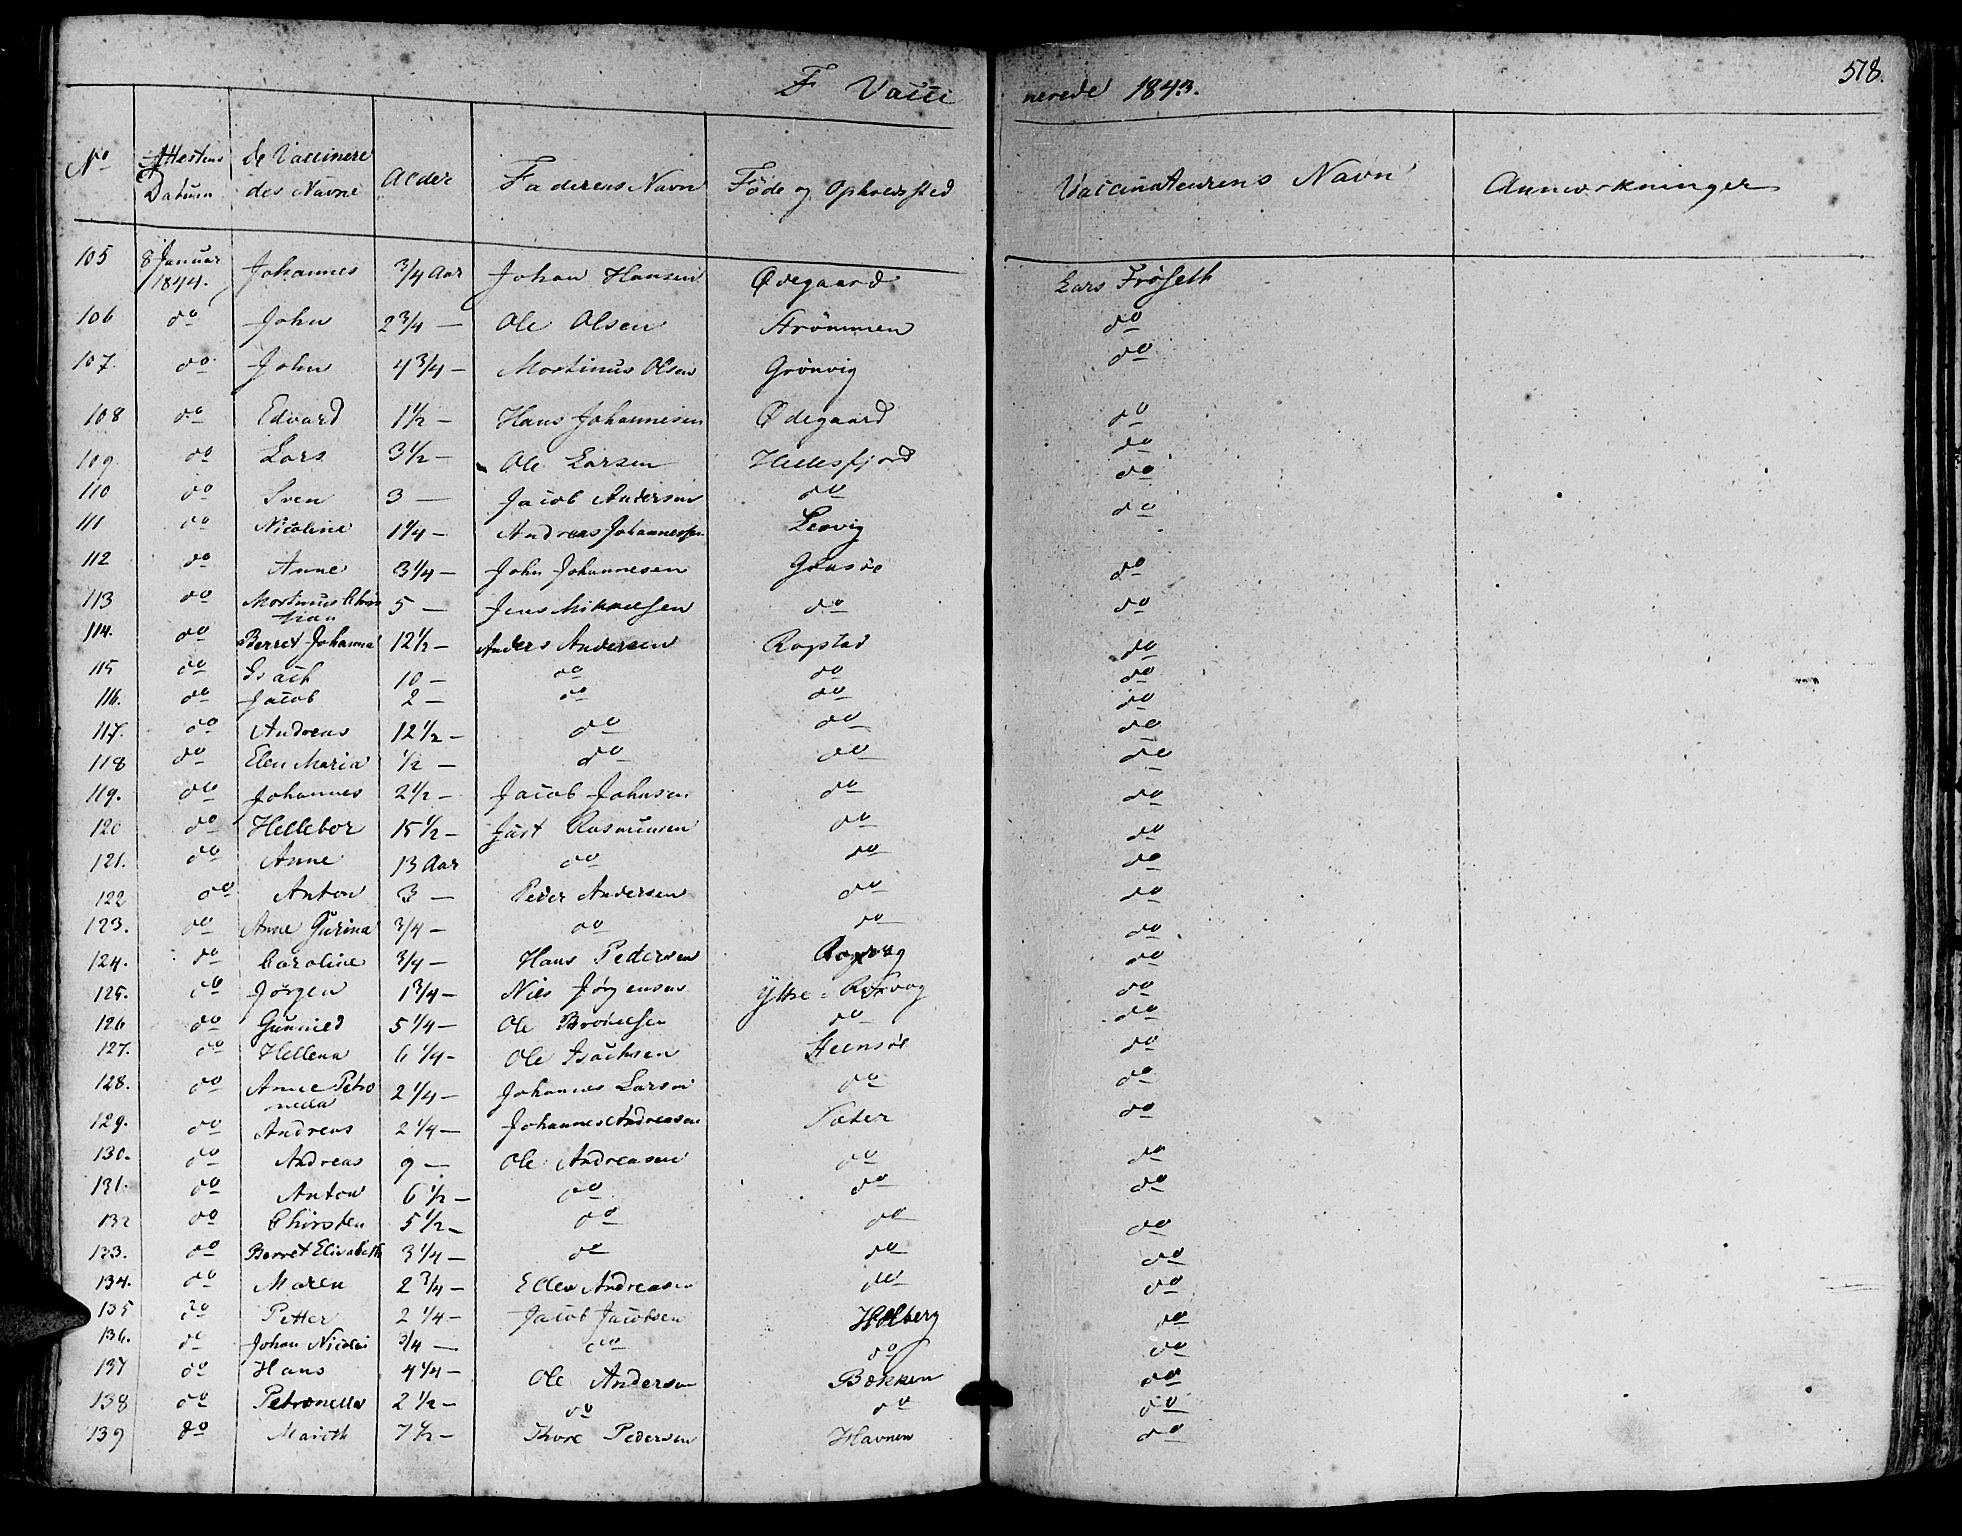 F Vacci nerede 1843. 578.
No Attestens Datum De Vaccinere des Navne Alder Faderens Navn Føde og Opholdssted Vaccinateurens Navn Anmærkninger
105 8 Januar 1844. Johannes 3/4 Aar Johan Hansen Ødegaard Lars Frøseth
106 do John 2 3/4 — Ole Olsen Strømmen do
107. do John 4 3/4 — Mortinus Olsen Grönvig do
108 do Edvard 1 1/2 — Hans Johannesen Ødegaard do
109 do Lars 3 1/2 — Ole Larsen Hellesfjord do
110 do Sven 3 — Jacob Andersen do do
111 do Nicoline 1 1/4 — Andreas Johannessen Lervig do
112 do Anne 3 1/4 — John Johannesen do
113 do Mortinus Chris tian 5 — Jens Mikkelsen do do
114. do Berret Johanna 12 1/2 — Anders Andersen Rogstad do
115 do Isach 10 — do do do
116. do Jacob 2 — do do do
117. do Andreas 12 1/2 — do do do
118 do Elen Maria 1/2 — do do do
119. do Johannes 2 1/2 — Jacob Johnsen do do
120 do Hellebor 15 1/2 — Just Rasmusen do do
121. do Anne 13 Aar do do do
122 do Anton 3 — Peder Andersen do do
123. do Anne Gurina 3/4 — do do do
124. do Caroline 3/4 — Hans Pedersen do
125. do Jørgen 1 3/4 — Niels Jørgensen Yttre = do
126 do Gunnild 5 1/4 — Ole do do
127. do Hellena 6 1/4 — Ole Isachsen Steensøe do
128. do Anne Petro nella 2 1/4 — Johannes Larsen do do
129. do Andreas 2 1/4 — Johannes Andreasen Sæter do
130. do Andreas 9 — Ole Andreasen do do
131. do Anton 6 1/2 — do do do
132 do Chirsten 5 1/2 — do do do
133. do Berret Elisabeth 3 1/4 — do do do
134. do Maren 2 3/4 — Ellev Andreasen do do
135 do Petter 2 1/4 — Jacob Jacobsen do
136. do Johan Nicolai 3/4 — do do do
137 do Hans 4 1/4 — Ole Andersen Bækken do
138 do Petronella 2 1/2 — do do do
139 do Marith 7 1/2 — Thore Pedersen Havnen do